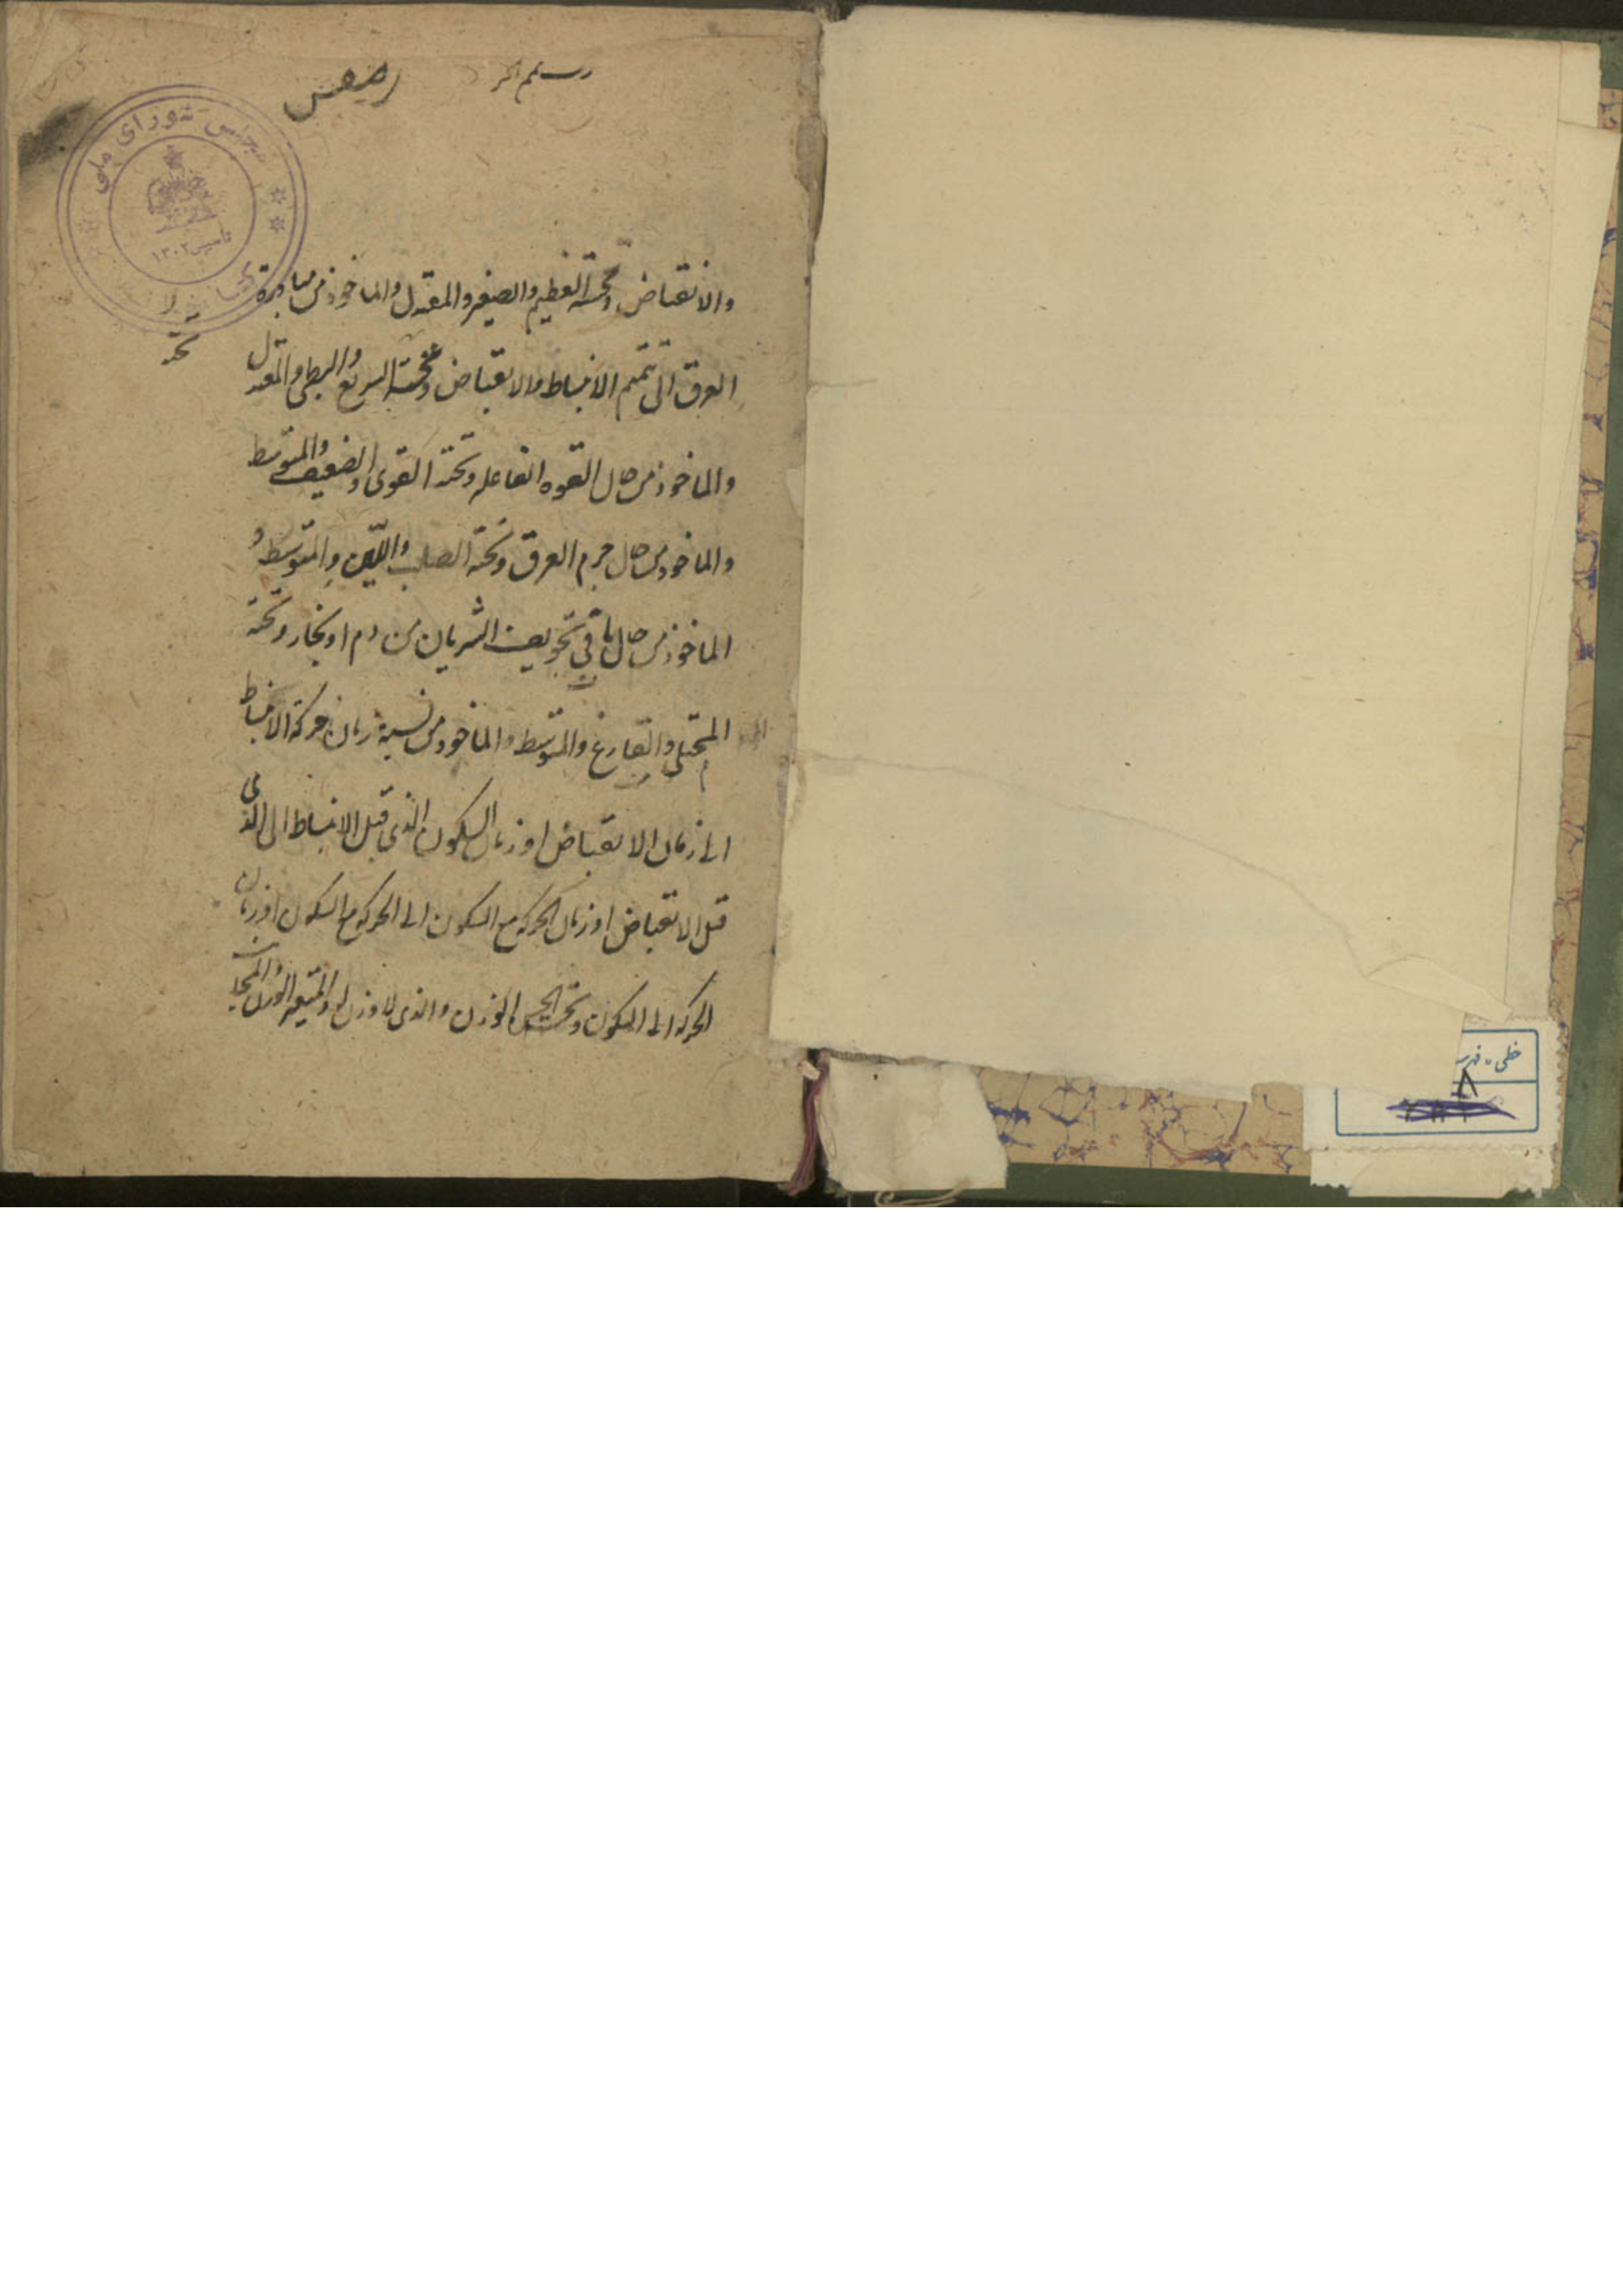 مجلس شورای ملی
تاسیس ۱۳۰۲
والانقباض وتحته العظیم والصغیر والمعتدل والماخوذ من مبادرة
تحد
العرق الی تتمیم الانبساط والانقباض وتحته السریع والبطی والمعتدل
والماخوذ من حال القوه الفاعله وتحته القوی والضعیف والمتوسط
والماخوذ من حال جرم العرق وتحته الصلب واللین والمتوسط و
الماخوذ من حال ما فی تجویف الشریان من دم او بخار وتحته
الممتلی والفارغ والمتوسط والماخوذ من نسبة زمان حرکة الانبساط
الی زمان الانقباض او زمان السکون الذی قبل الانبساط الی الذی
قبل الانقباض او زمان الحرکه مع السکون الی الحرکه مع السکون او زمان
الحرکه الی السکون وتحته الحسن الوزن والذی لا وزن له والمتغیر الوزن
خطی - فهر
۸